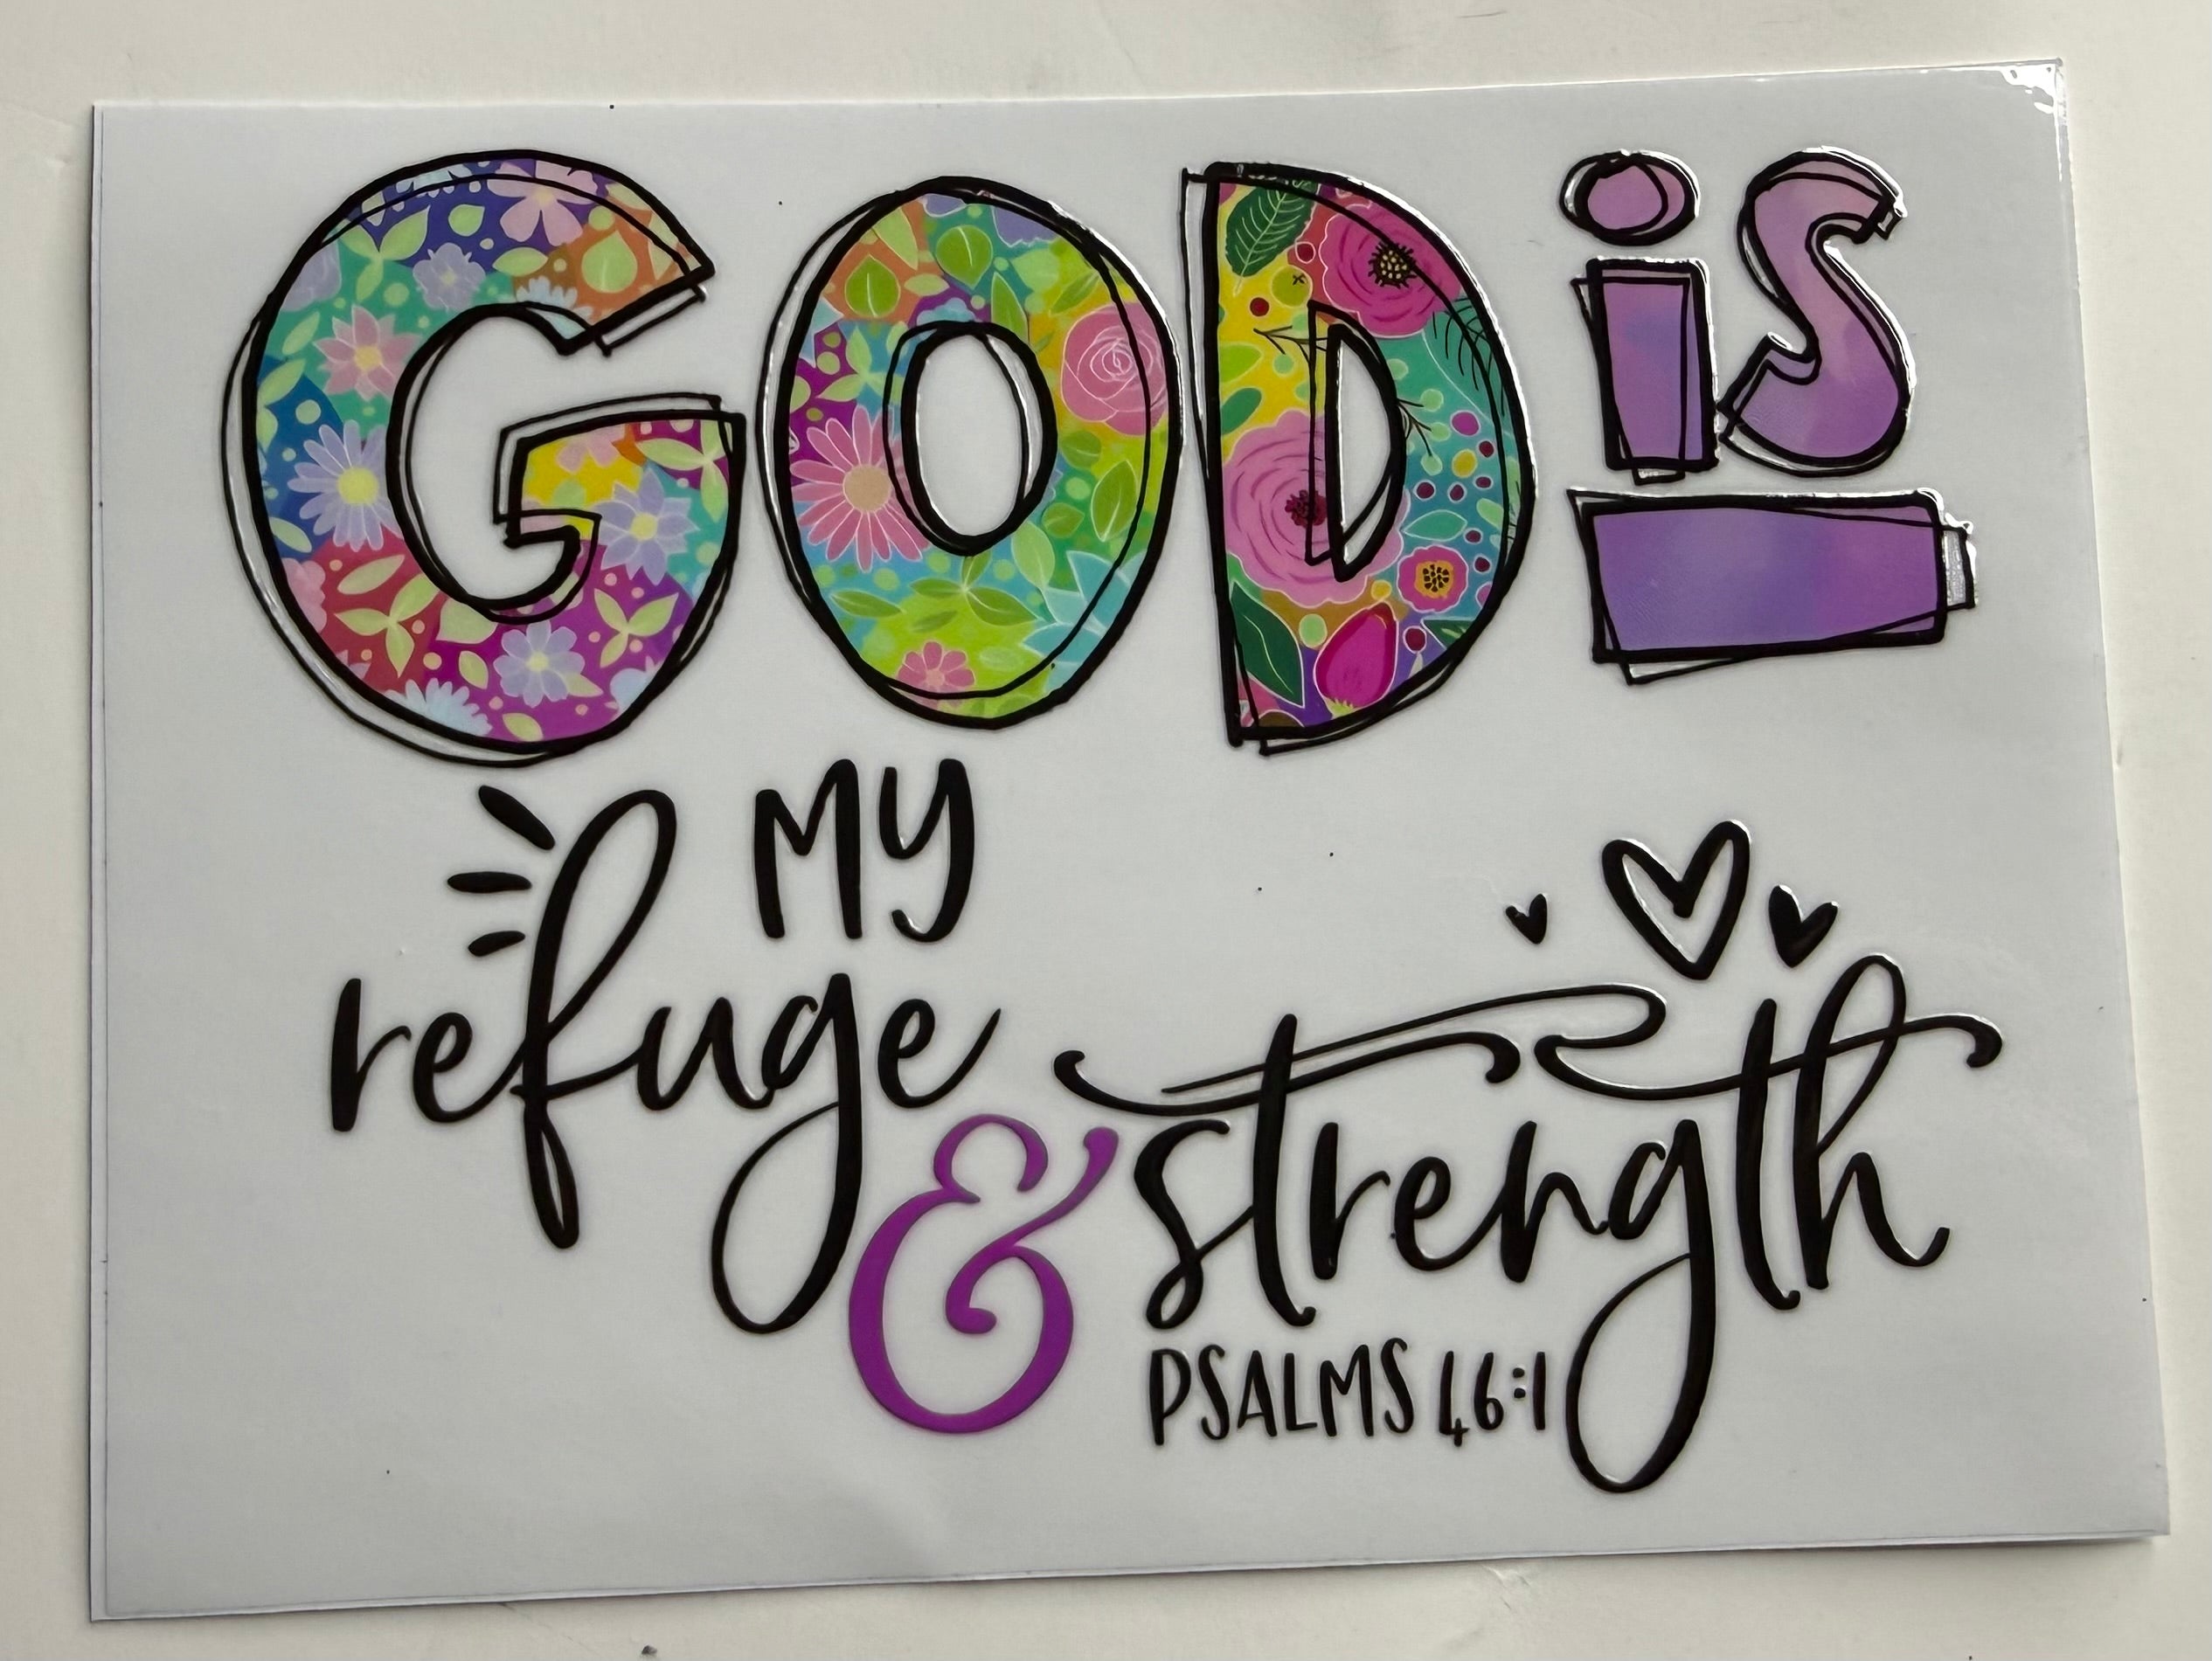 GOD is
MY
refuge
& strength
PSALMS 46:1